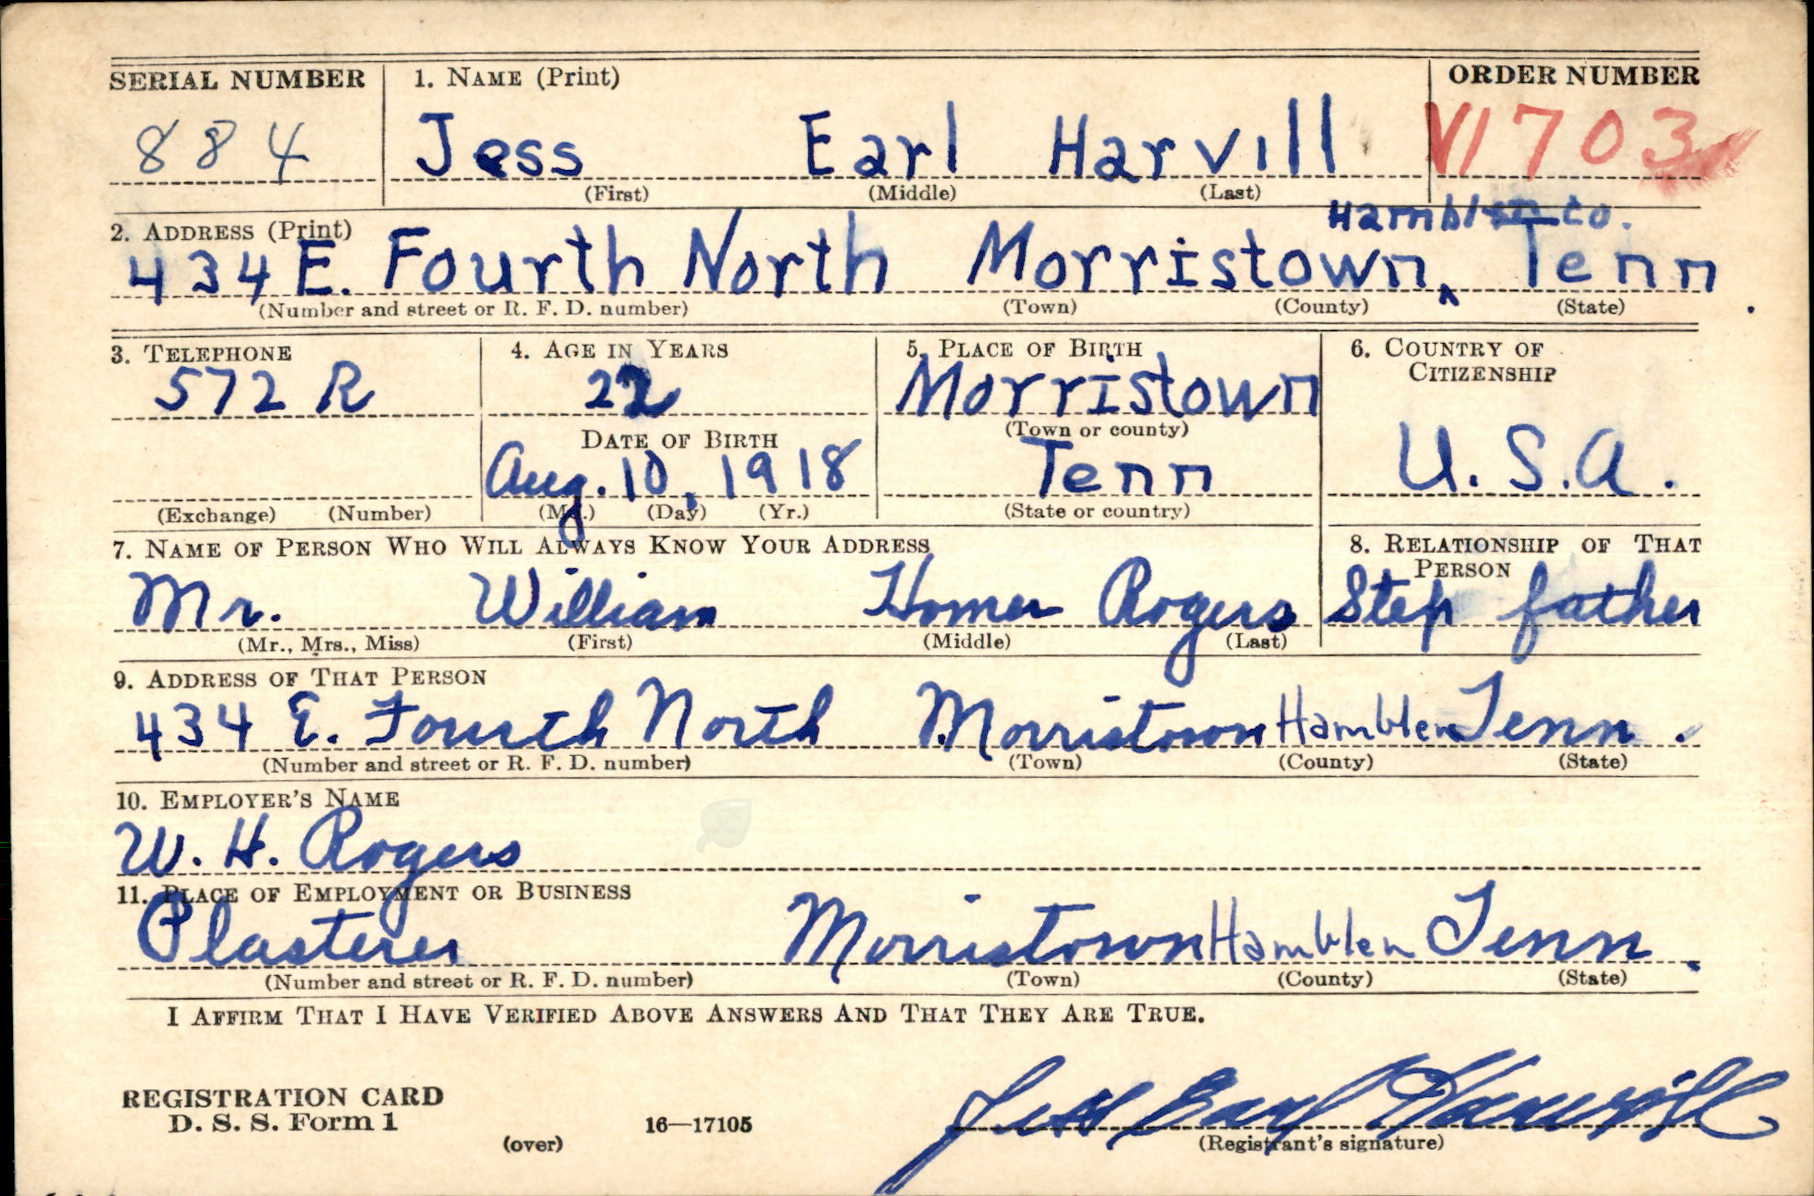 SERIAL NUMBER 1. NAME (Print) ORDER NUMBER
884 Jess Earl Harvill V1703
(First) (Middle) (Last)
2. ADDRESS (Print) Hamblen Co.
434 E. Fourth North Morristown, Tenn.
(Number and street or R. F. D. number) (Town) (County) (State)
3. TELEPHONE 4. AGE IN YEARS 5. PLACE OF BIRTH 6. COUNTRY OF CITIZENSHIP
572 R 22 Morristown
DATE OF BIRTH (Town or county)
Aug. 10, 1918 Tenn U.S.A.
(Exchange) (Number) (Mo.) (Day) (Yr.) (State or country)
7. NAME OF PERSON WHO WILL ALWAYS KNOW YOUR ADDRESS 8. RELATIONSHIP OF THAT PERSON
Mr. William Homer Rogers Step father
(Mr., Mrs., Miss) (First) (Middle) (Last)
9. ADDRESS OF THAT PERSON
434 E. Fourth North Morristown Hamblen Tenn.
(Number and street or R. F. D. number) (Town) (County) (State)
10. EMPLOYER'S NAME
W. H. Rogers
11. PLACE OF EMPLOYMENT OR BUSINESS
Plasterer Morristown Hamblen Tenn.
(Number and street or R. F. D. number) (Town) (County) (State)
I AFFIRM THAT I HAVE VERIFIED ABOVE ANSWERS AND THAT THEY ARE TRUE.
REGISTRATION CARD
D. S. S. Form 1 16—17105 Jess Earl Harvill
(over) (Registrant's signature)